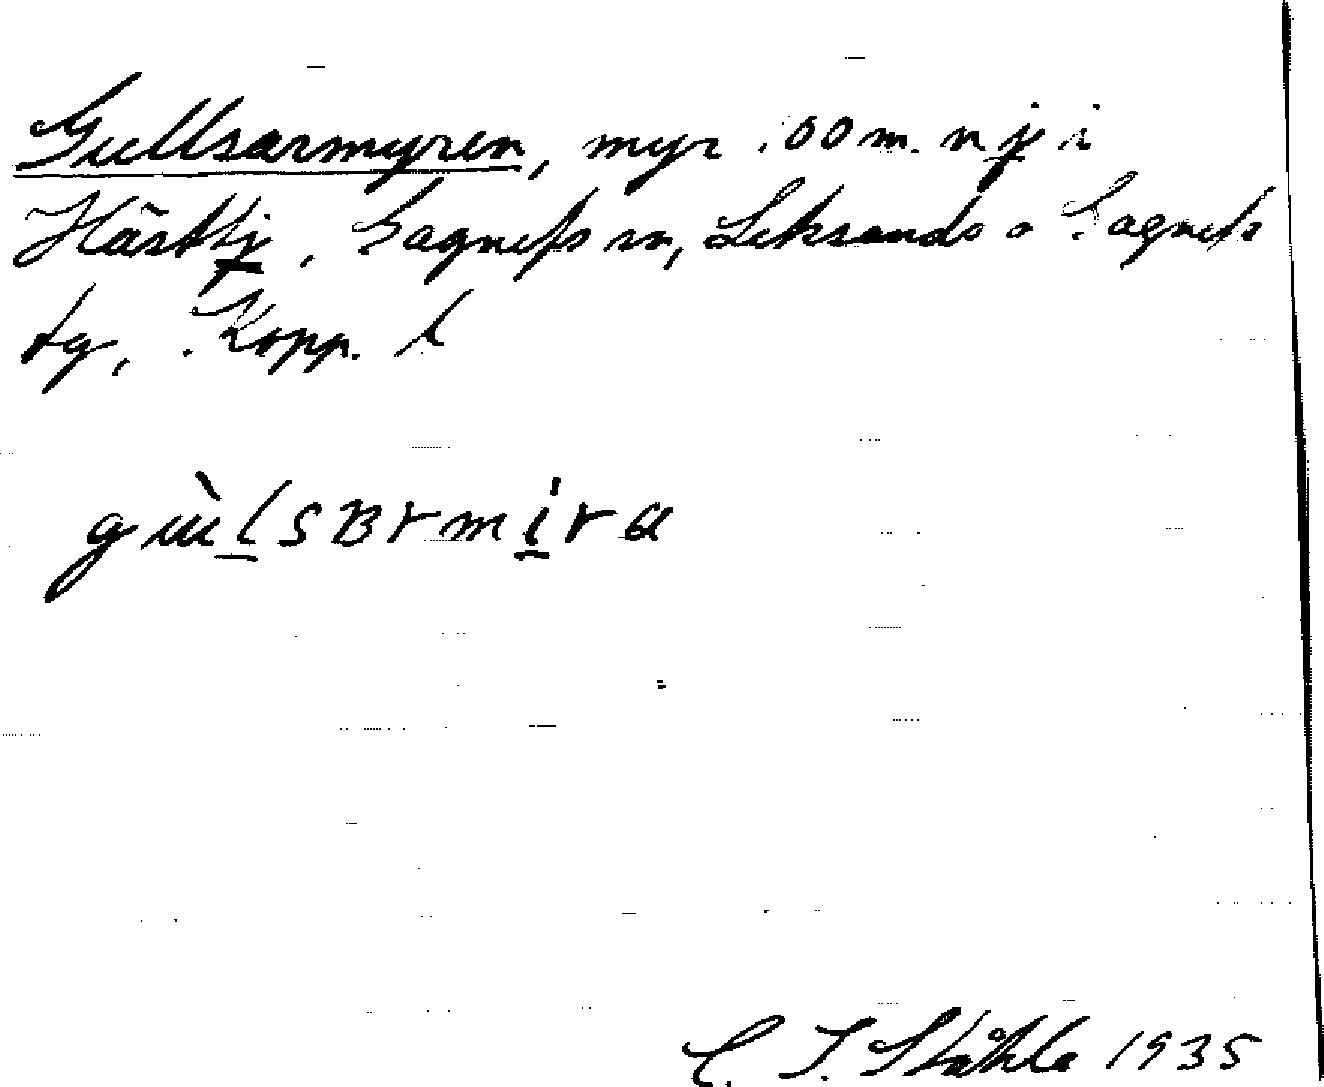 Gullsarmyren, myr 100 m. n j i
Hästtj, Gagnefs sn, Leksands o Gagnefs
tg, Kopp. l
gɯ̀lsBrmíra
C. I. Ståhle 1935